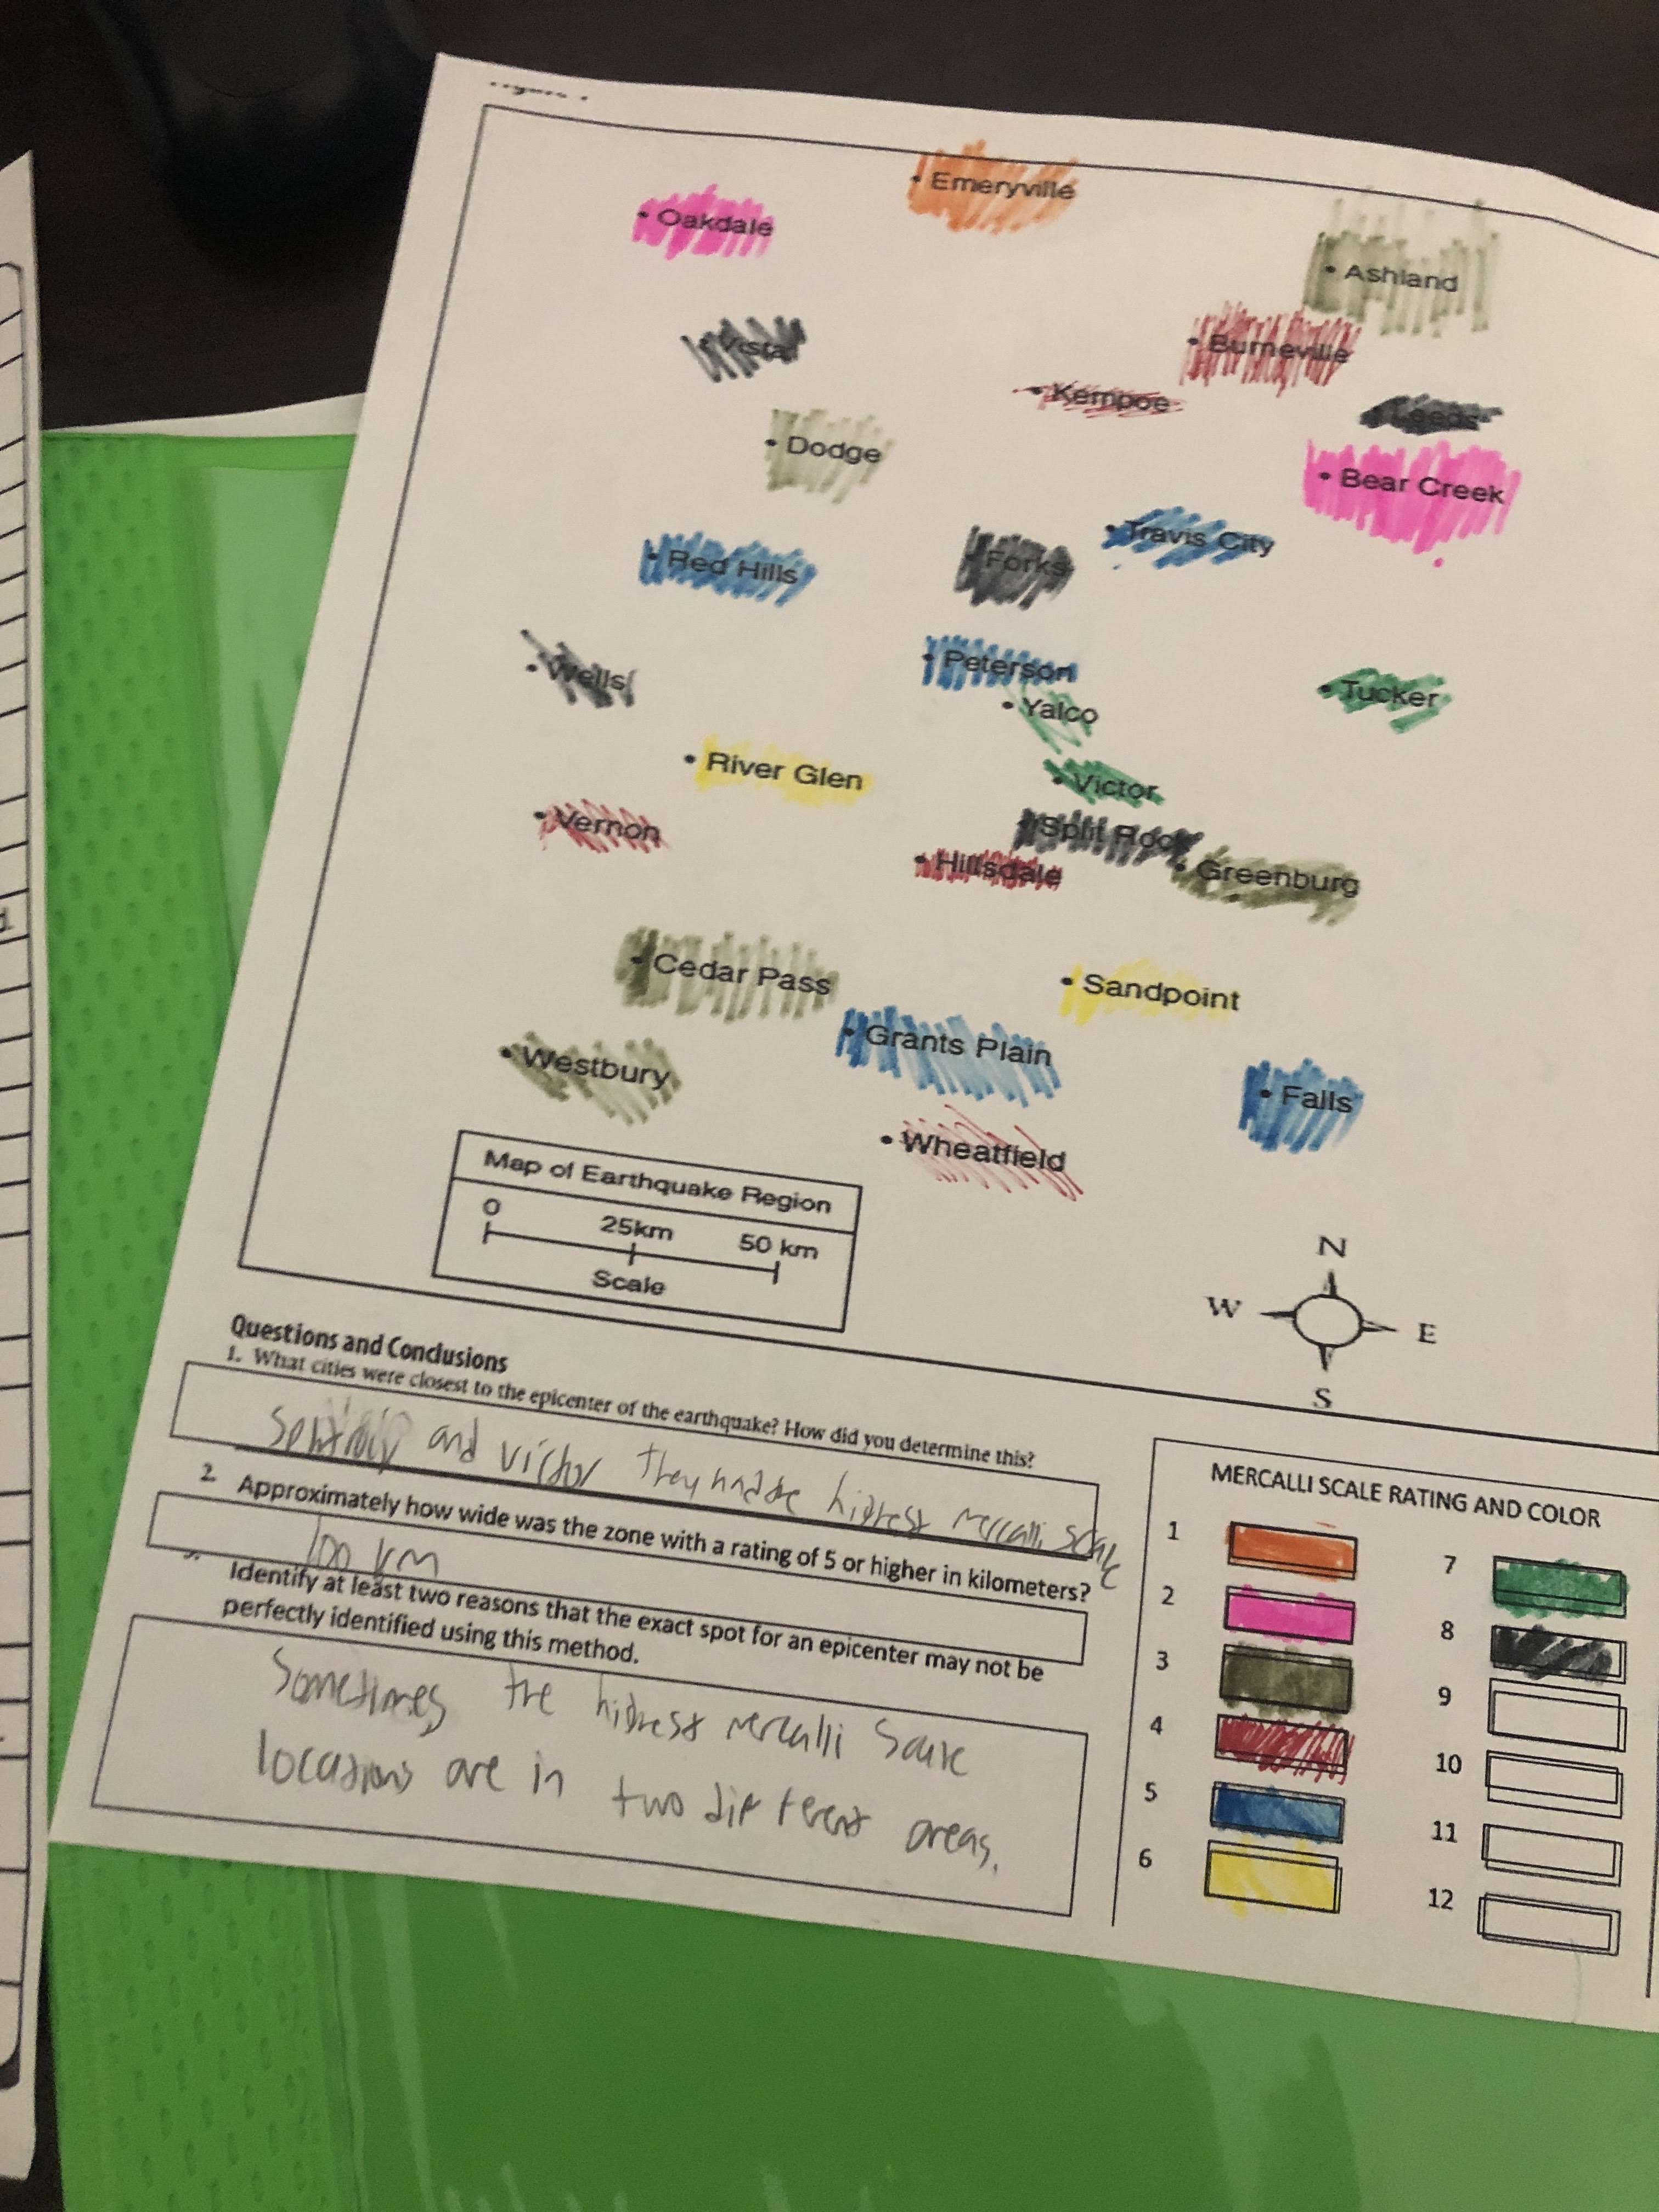 Emeryville
Oakdale
Ashland
Vista
Burneville
Kempoe
Leeds
Dodge
Bear Creek
Travis City
Red Hills
Forks
Peterson
Wells
Tucker
Yalco
River Glen
Victor
Vernon
Split Rock
Hillsdale
Greenburg
Cedar Pass
Sandpoint
Grants Plain
Westbury
Falls
Wheatfield
Map of Earthquake Region
0 25km 50 km
Scale
N
W E
S
Questions and Conclusions
1. What cities were closest to the epicenter of the earthquake? How did you determine this?
and victor they had the highest mercalli scale
2. Approximately how wide was the zone with a rating of 5 or higher in kilometers?
100 km
Identify at least two reasons that the exact spot for an epicenter may not be
perfectly identified using this method.
Sometimes the highest mercalli
locations are in two different areas.
MERCALLI SCALE RATING AND COLOR
1
2
3
4
5
6
7
8
9
10
11
12